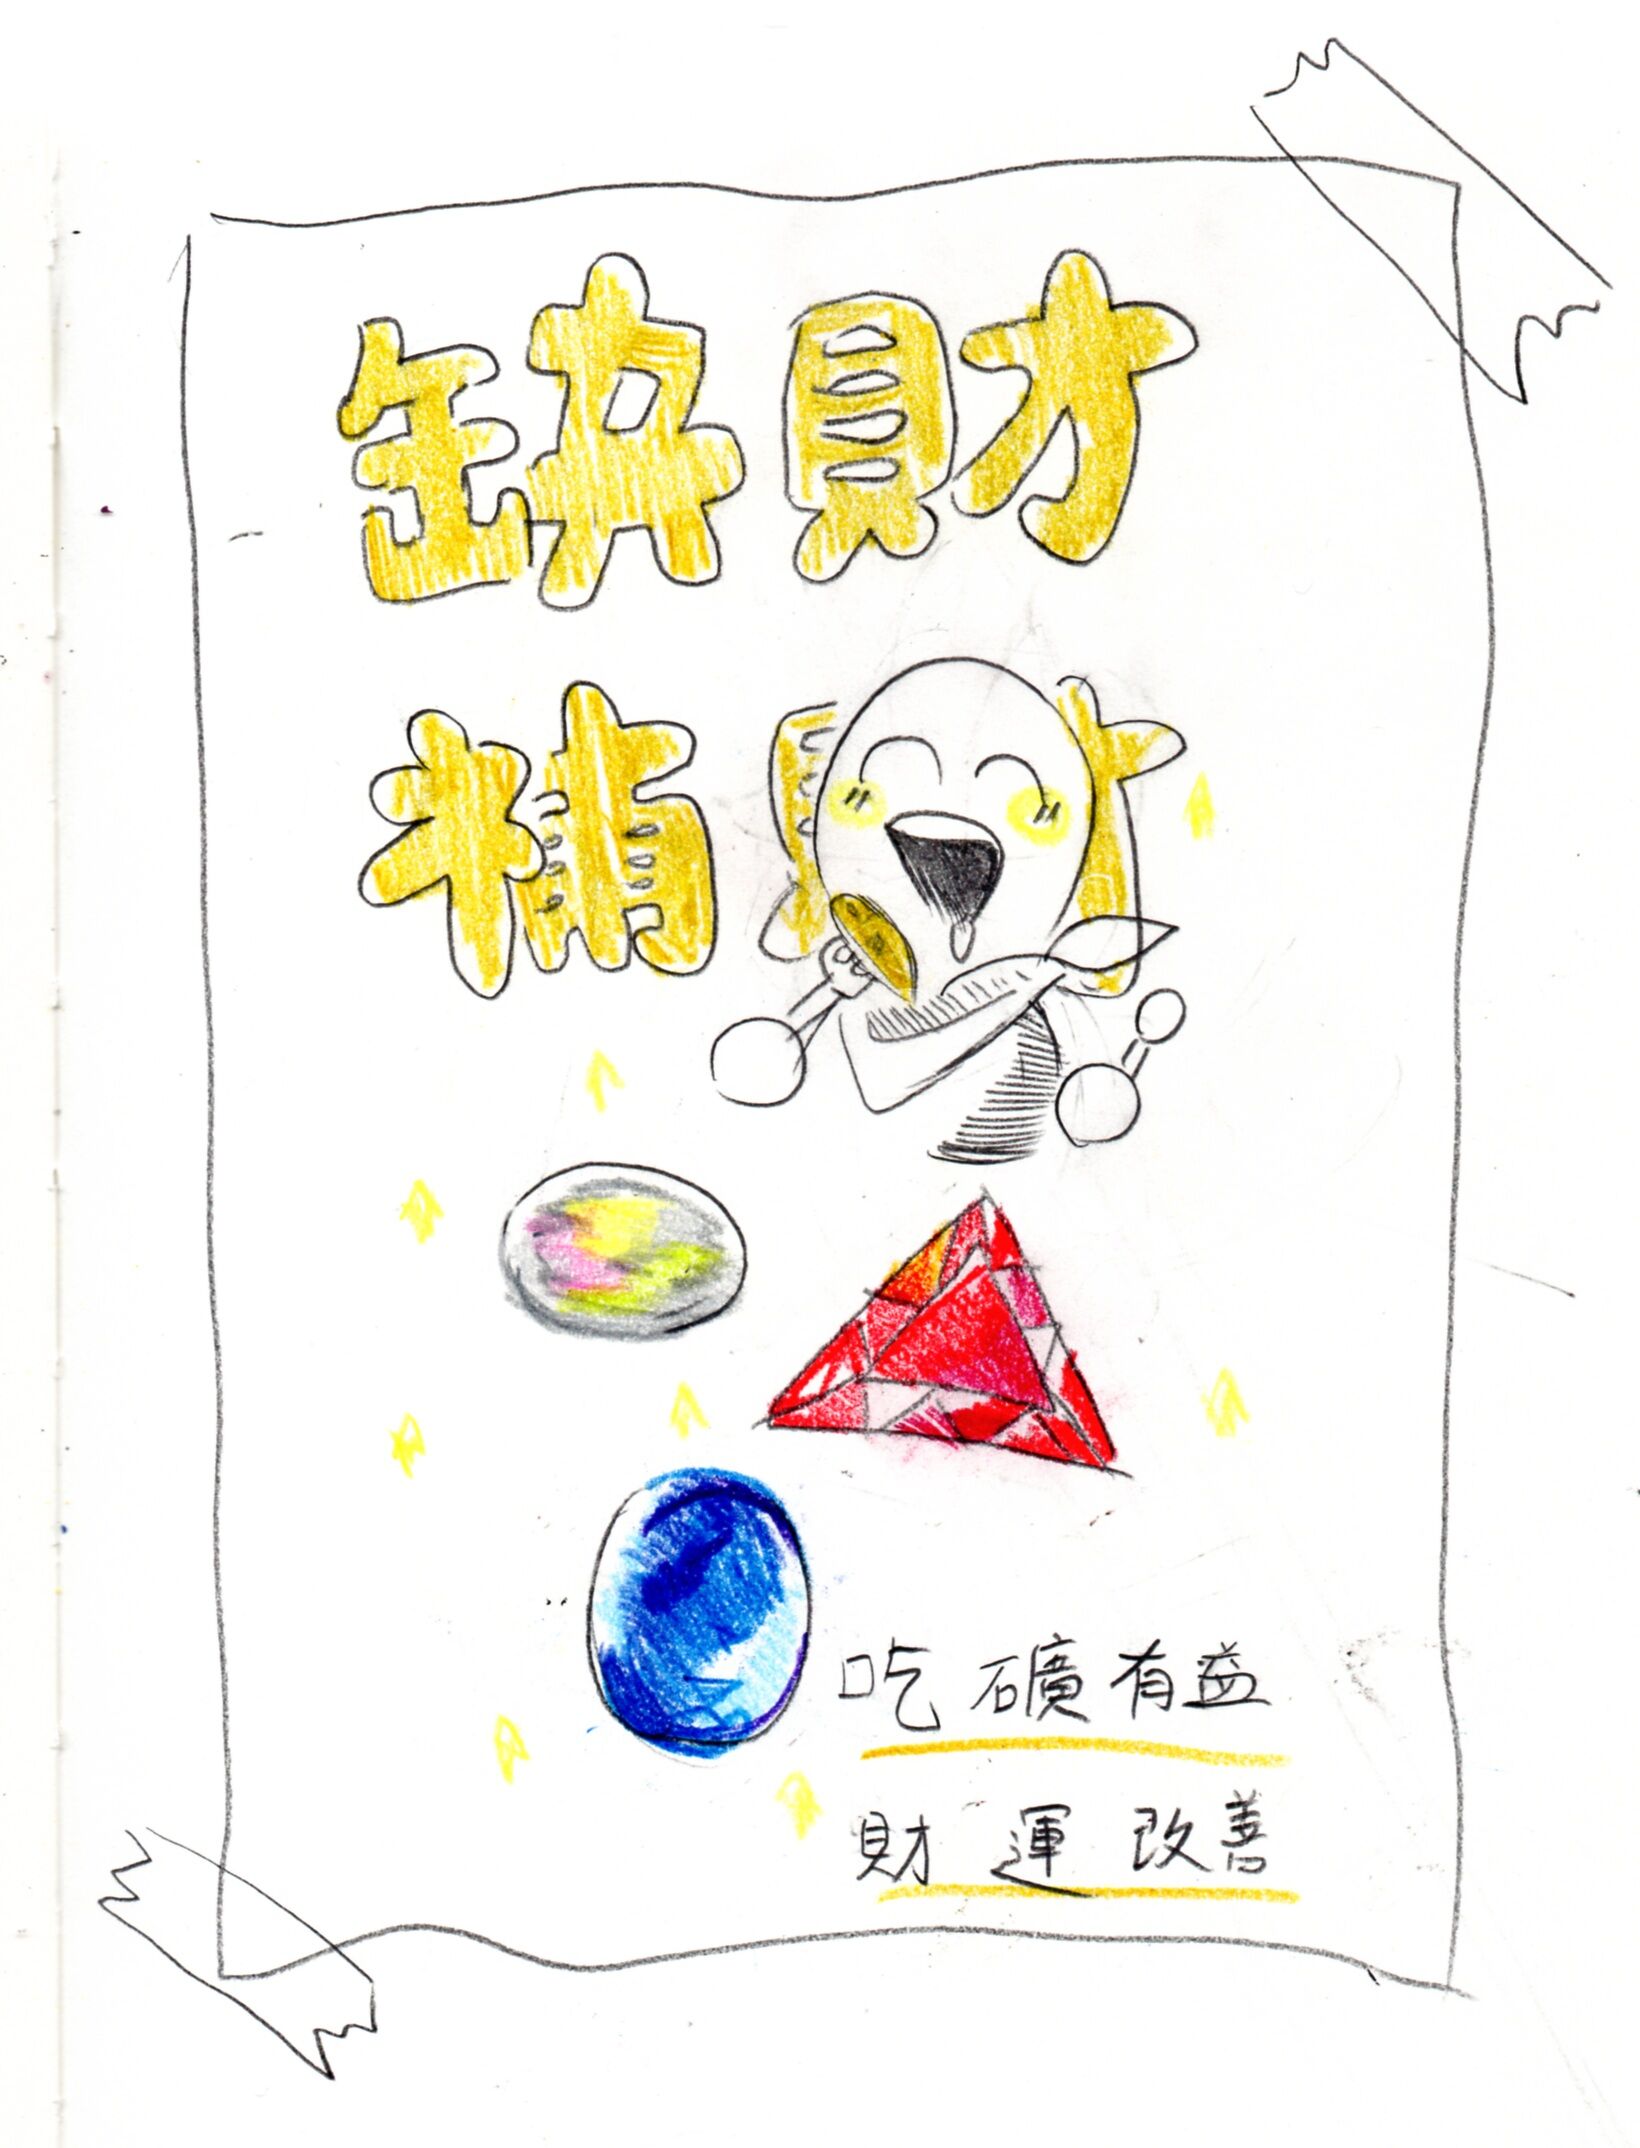 缺財
補財
吃礦有益
財運改善